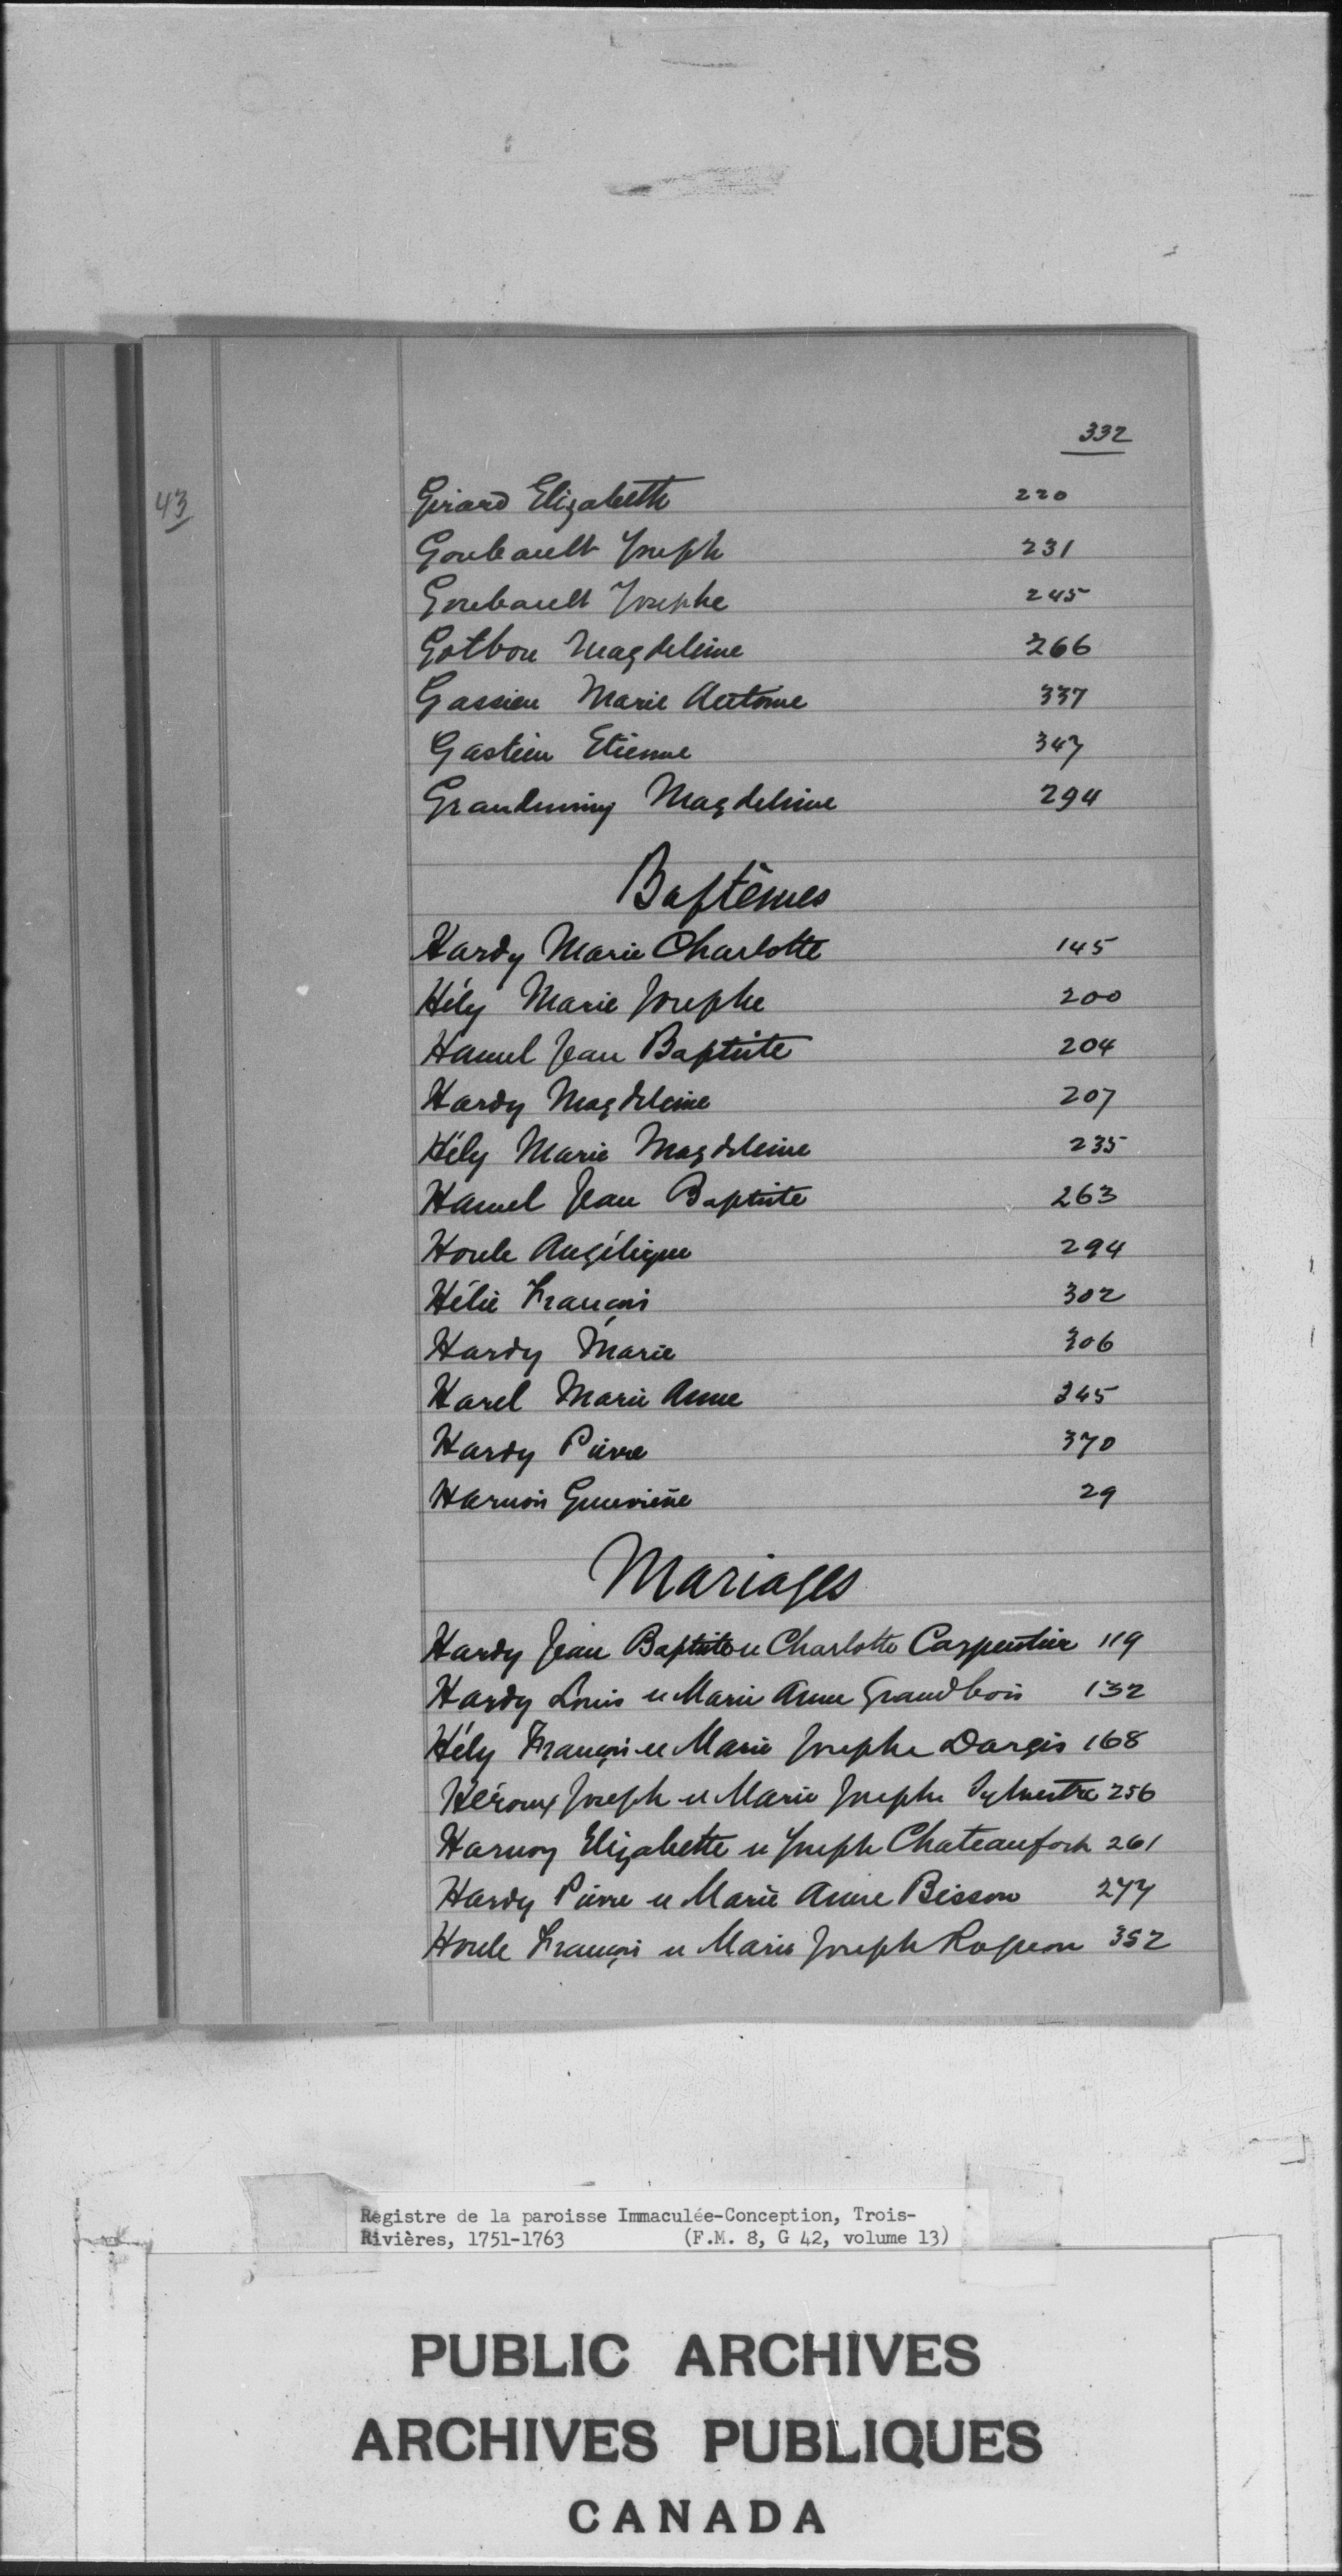 332
43
Girard Elizabeth 220
Goubault Joseph 231
Goubault Josephe 245
Gotbou Magdeleine 266
Gassien Marie Antoine 337
Gastien Etienne 347
Magdeleine 294
Baptêmes
Hardy Marie Charlotte 145
Hély Marie Josephe 200
Hamel Jean Baptiste 204
Hardy Magdeleine 207
Hély Marie Magdeleine 235
Hamel Jean Baptiste 263
Houle Angélique 294
Hélie François 302
Hardy Marie 306
Harel Marie Anne 345
Hardy Pierre 370
Harnois Geneviève 29
Mariages
Hardy Jean Baptiste u Charlotte Carpentier 119
Hardy Louis u Marie Anne Grandbois 132
Hély François u Marie Josephe Dargis 168
Héroux Joseph u Marie Josephe Sylvestre 256
Harnoy Elizabette u Joseph Chateaufort 261
Hardy Pierre u Marie Anne Bisson 277
Houle François u Marie Joseph 352
Registre de la paroisse Immaculée-Conception, Trois-
Rivières, 1751-1763 (F.M. 8, G 42, volume 13)
PUBLIC ARCHIVES
ARCHIVES PUBLIQUES
CANADA